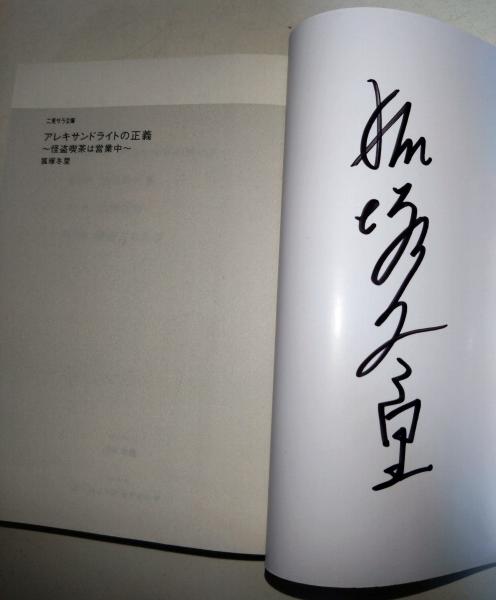 二見サラ文庫
アレキサンドライトの正義
～怪盗喫茶は営業中～
狐塚冬里
狐塚冬里